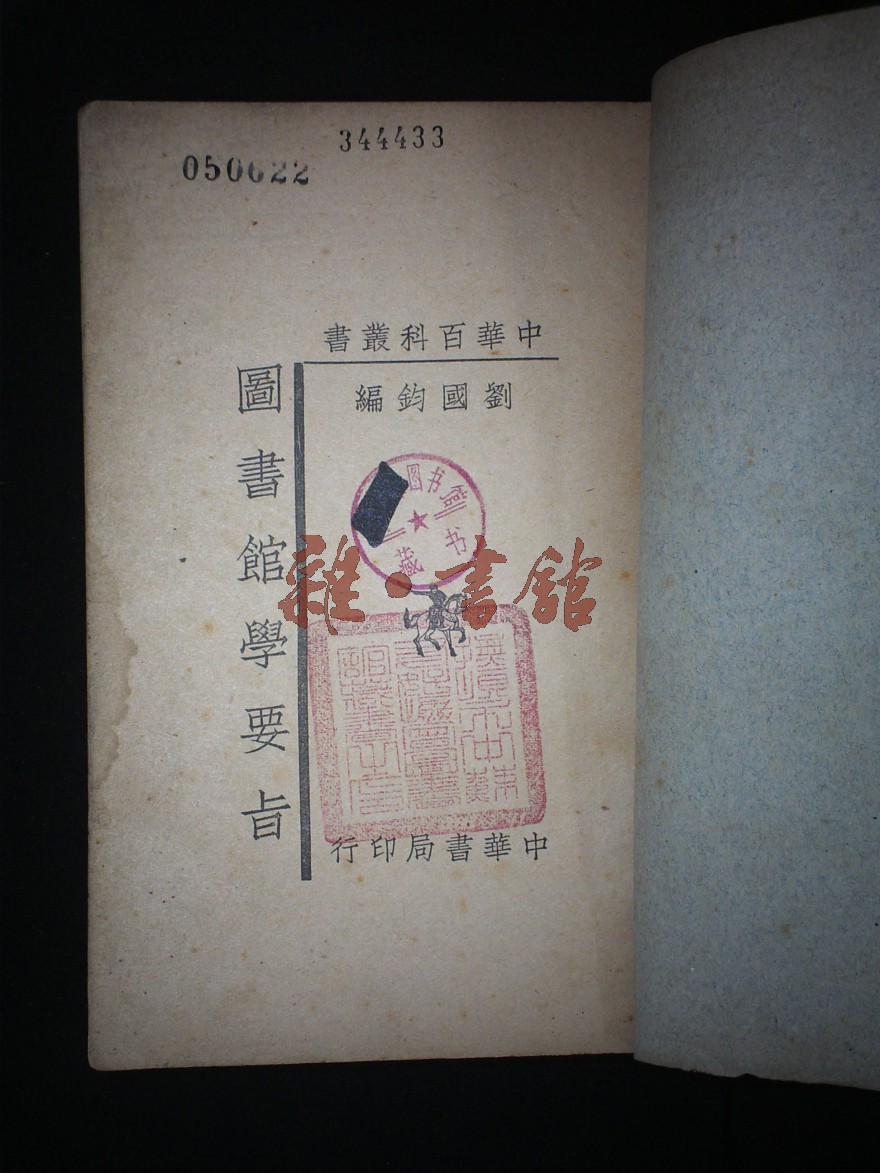 344433
050622
中華百科叢書
劉國鈞編
圖書館學要旨
图书馆
藏书
雜·書舘
中華書局印行